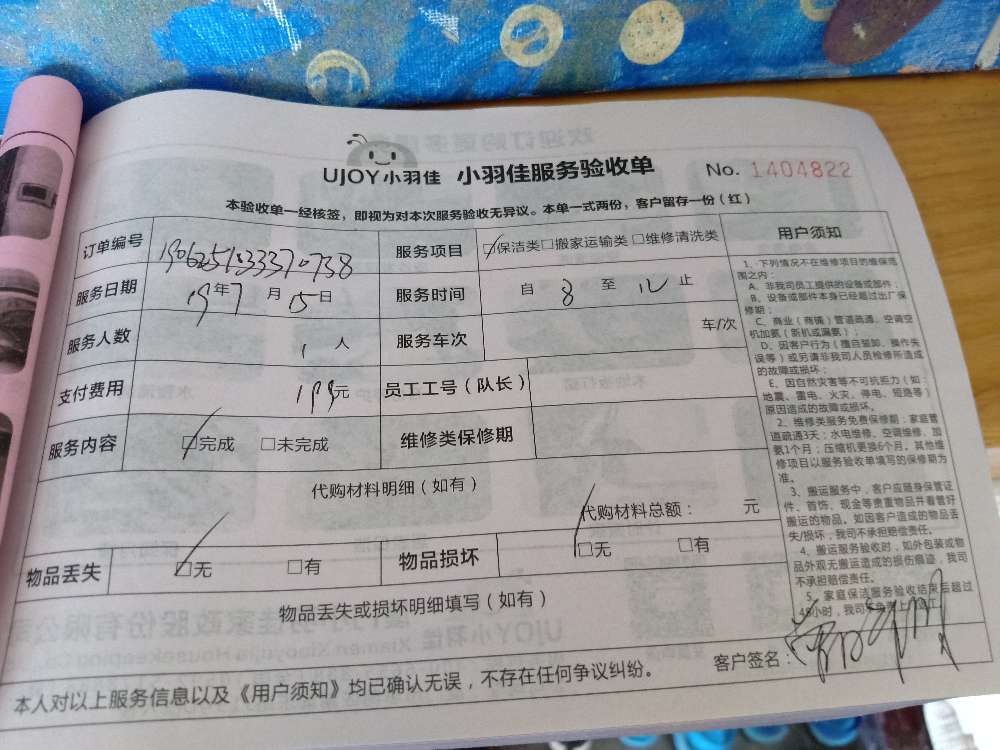 UJOY小羽佳 小羽佳服务验收单 No. 1404822
本验收单一经核签，即视为对本次服务验收无异议。本单一式两份，客户留存一份（红）
订单编号 服务项目 ☑保洁类□搬家运输类□维修清洗类
服务日期 19年7月15日 服务时间 自 8 至 12 止
服务人数 1 人 服务车次 车/次
支付费用 199元 员工工号（队长）
服务内容 ☑完成 □未完成 维修类保修期
代购材料明细（如有）
代购材料总额： 元
物品丢失 ☑无 □有 物品损坏 ☑无 □有
物品丢失或损坏明细填写（如有）
客户签名：
本人对以上服务信息以及《用户须知》均已确认无误，不存在任何争议纠纷。
用户须知
1、下列情况不在维修项目的维保范
围之内：
A、非我司员工提供的设备或部件；
B、设备或部件本身已经超过出厂保
修期；
C、商业（商铺）管道疏通、空调空
机加氨（新机或漏氨）；
D、因客户行为（擅自猫卸、操作失
误等）或另请非我司人员检修所造成
的故障或损坏；
E、因自然灾害等不可抗拒力（如：
地震、雷电、火灾、停电、短路等）
原因造成的故障或损坏。
2、维修类服务免费保修期：家庭管
道疏通3天；水电维修、空调维修、加
氨1个月；压缩机更换6个月。其他维
修项目以服务验收单填写的保修期为
准。
3、搬运服务中，客户应随身保管证
件、首饰、现金等贵重物品并看管好
搬运的物品。如因客户造成的物品丢
失/损坏，我司不承担赔偿责任。
4、搬运服务验收时，如外包装或物
品外观无搬运造成的损伤痕迹，我司
不承担赔偿责任。
5、家庭保洁服务验收结束后超过
48小时，我司